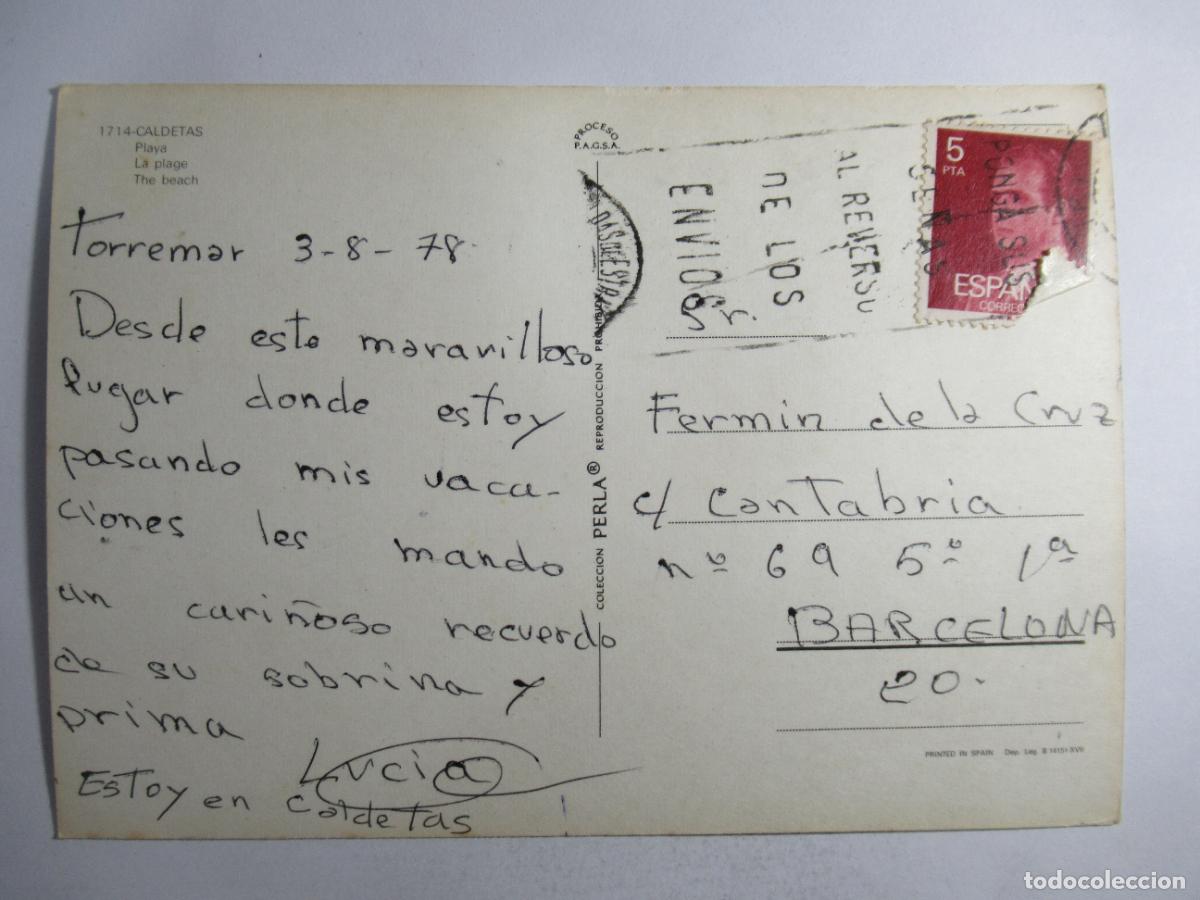 1714-CALDETAS
Playa
La plage
The beach
Torremar 3-8-78.
Desde este maravilloso
lugar donde estoy
pasando mis vaca-
ciones les mando
un cariñoso recuerdo
de su sobrina y
prima
Lucia
Estoy en Caldetas
PROCESO
P.A.G.S.A.
COLECCION PERLA® REPRODUCCION PROHIBIDA
PONGA SUS
SEÑAS
AL REVERSO
DE LOS
ENVIOS
5
PTA
ESPAÑ
CORREO
Sr.
Fermin de la Cruz
c/ Cantabria
nº 69 5º 1ª
BARCELONA
20.
PRINTED IN SPAIN Dep. Leg. B XVII
todocoleccion